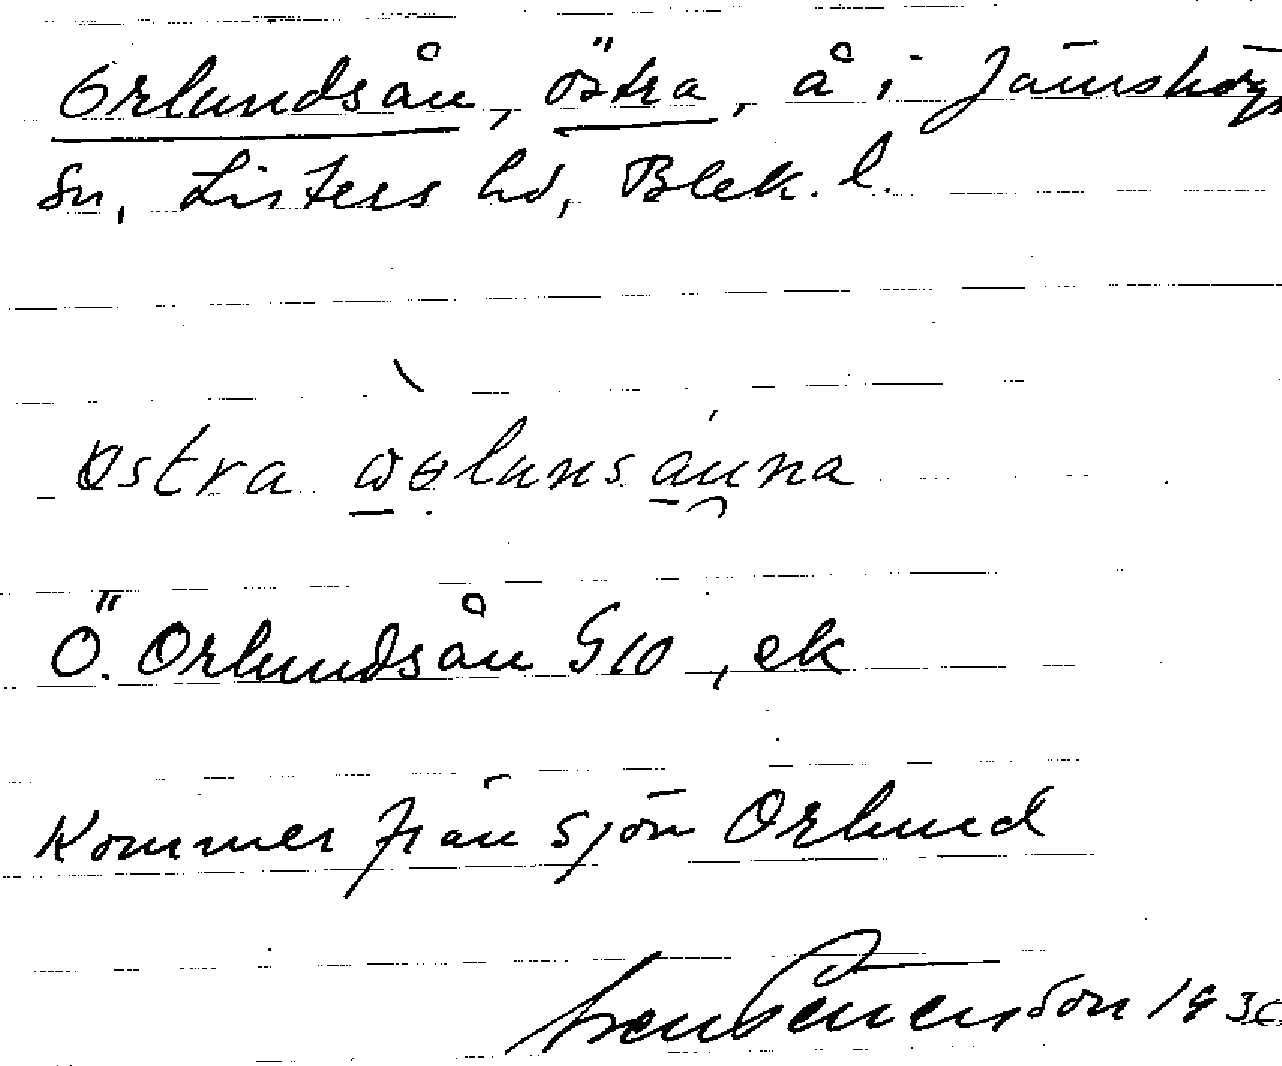 Orlundsån, östra, å i Jämshögs
sn, Listers hd, Blek. l.
östra
Ö. Orlundsån G10, ek
Kommer från sjön Orlund
1936